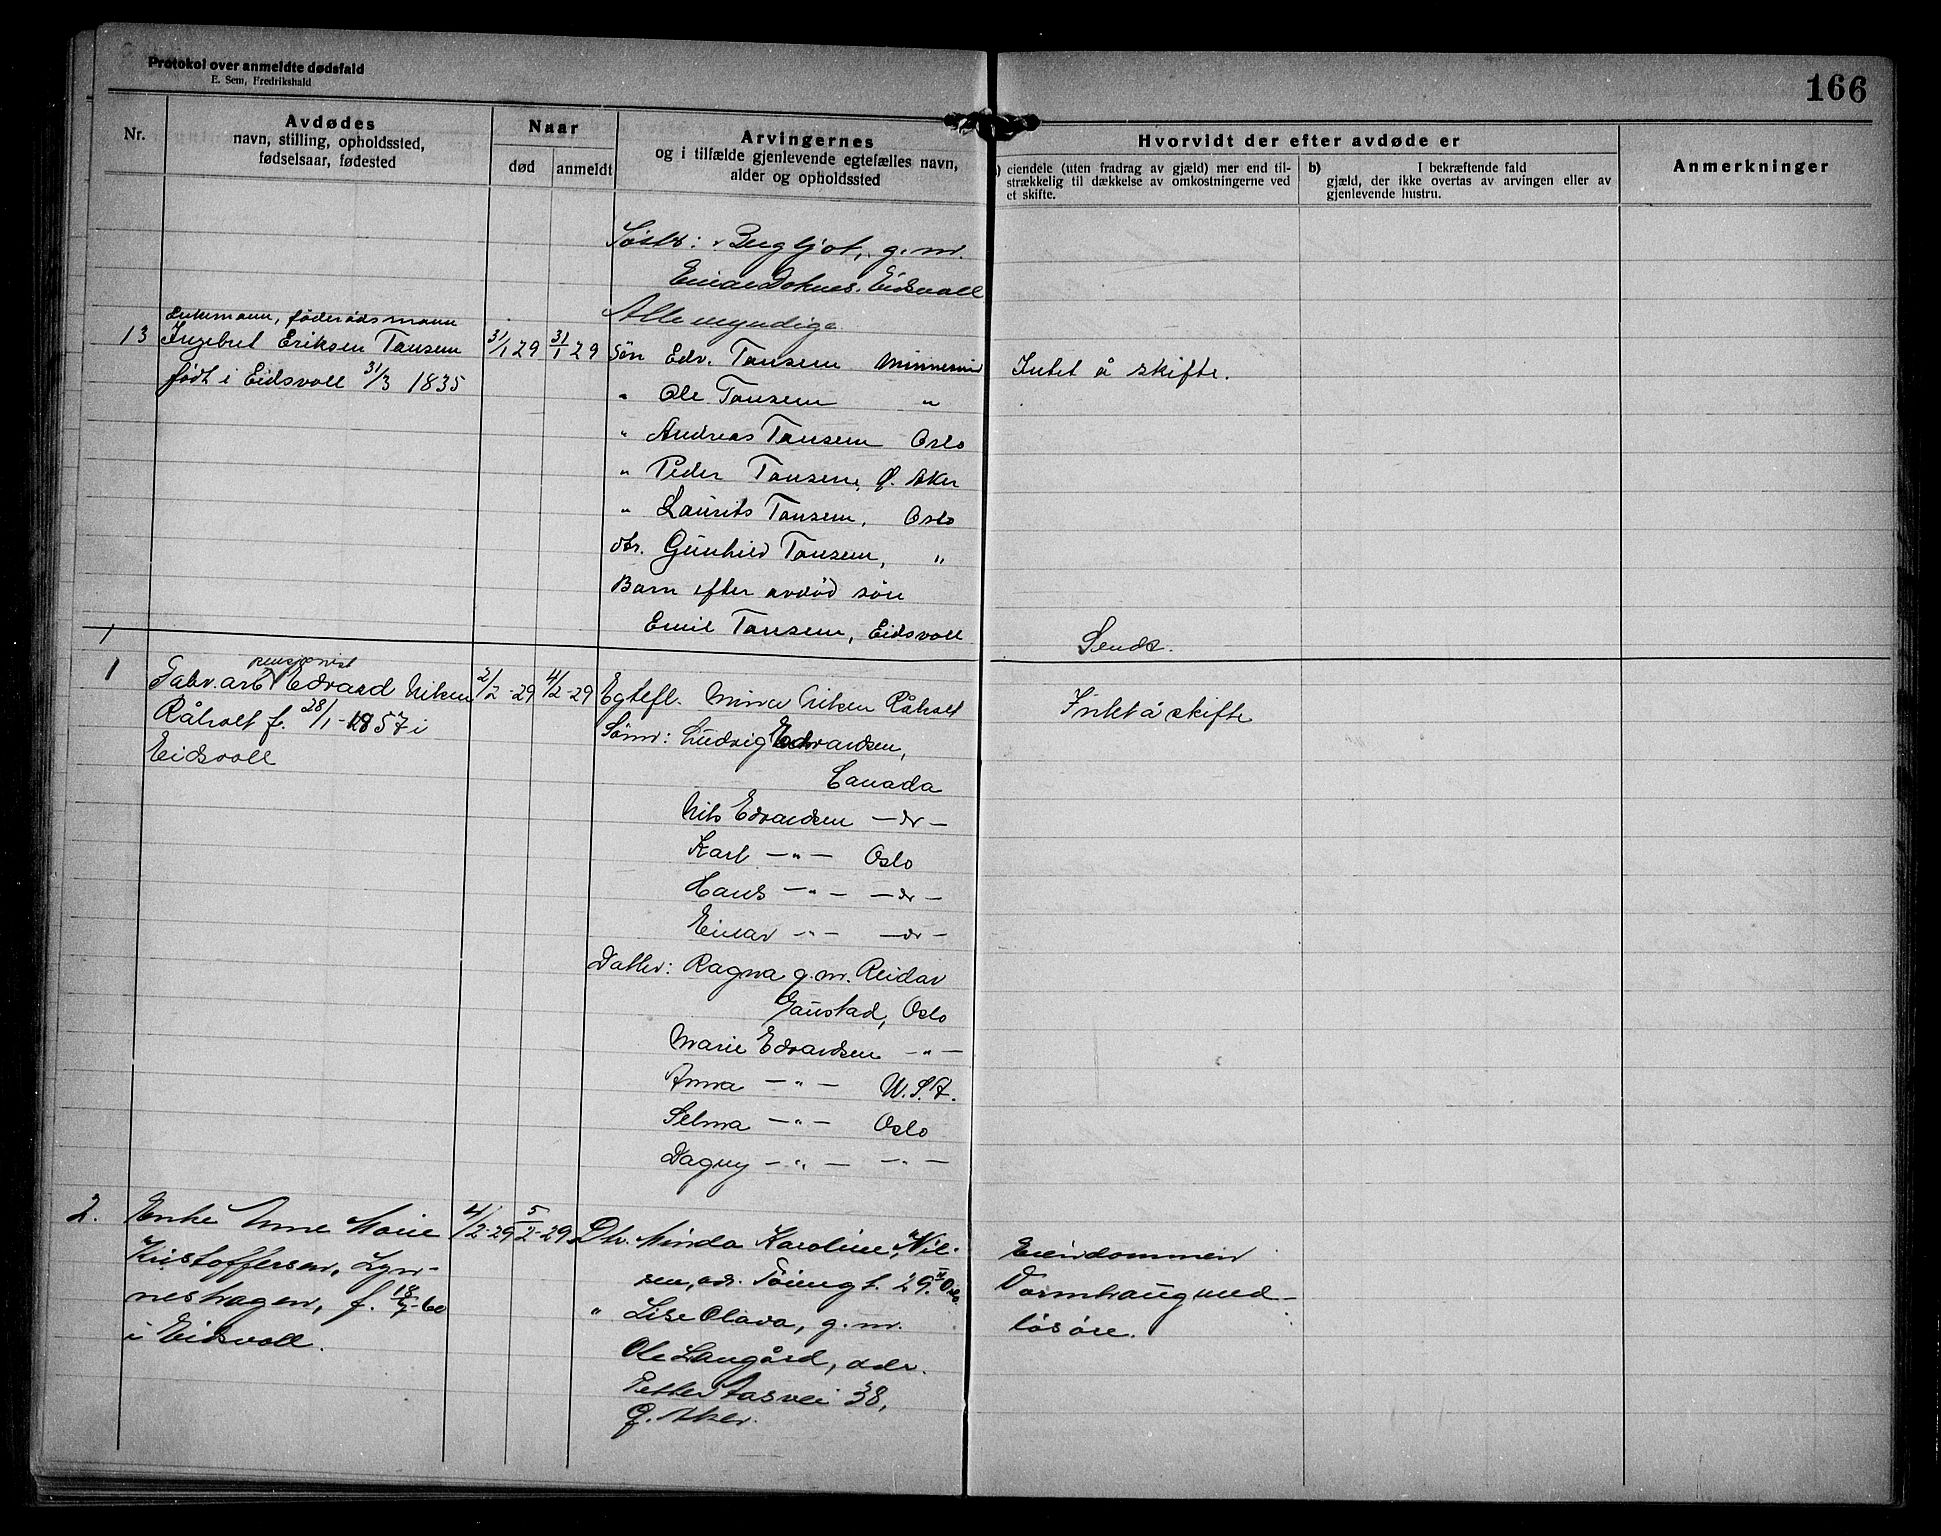 Protokol over anmeldte dødsfald
E. Sem, Fredrikshald
166
Nr.
Avdødes
navn, stilling, opholdssted,
fødselsaar, fødested
Naar
død
anmeldt
Arvingernes
og i tilfælde gjenlevende egtefælles navn,
alder og opholdssted
Hvorvidt der efter avdøde er
eiendele (uten fradrag av gjæld) mer end til-
strækkelig til dækkelse av omkostningerne ved
et skifte.
b) I bekræftende fald
gjæld, der ikke overtas av arvingen eller av
gjenlevende hustru.
Anmerkninger
Søster: Bergljot, g.m.
Einar Eidsvoll
Alle myndige
Enkemann, føderådsmann
13 Ingebret Eriksen Tønsem 31/1 29 31/1 29 Søn Edv. Tønsem Minnesund
Intet å skifte.
født i Eidsvoll 31/3 1835
" Ole Tønsem "
" Andreas Tønsem Oslo
" Peder Tønsem, Ø. Aker
" Laurits Tønsem, Oslo
dtr. Gunhild Tønsem, "
Barn efter avdød søn
Emil Tønsem, Eidsvoll
1
Sendt.
pensjonist
1 Fabr.arb. Edvard Nilsen 2/2-29 4/2-29 Egtefl. Nilsen Råholt
Råholt f. 28/1-1857 i
Intet å skifte
Eidsvoll
Sønner: Ludvig Edvardsen,
Canada
Nils Edvardsen — do —
Karl — " — Oslo
Hans — " — — do —
Einar — " — — do —
Datter: Ragna g.m. Reidar
Gaustad, Oslo
Marie Edvardsen — " —
Anna — " — U.S.A.
Selma — " — Oslo
Dagny — " — — " —
2. Enke Anne Marie 4/2-29 5/2-29 Dtr. Minda Karoline Nil-
Kristoffersen, Lyn-
sen, adr. Tøiengt. 29 II Oslo
Eiendommen
neshagen, f. -60
" Lise Olava, g.m.
Dormhaug med
i Eidsvoll.
Ole Langård, adr.
løsøre.
38,
Ø. Aker.